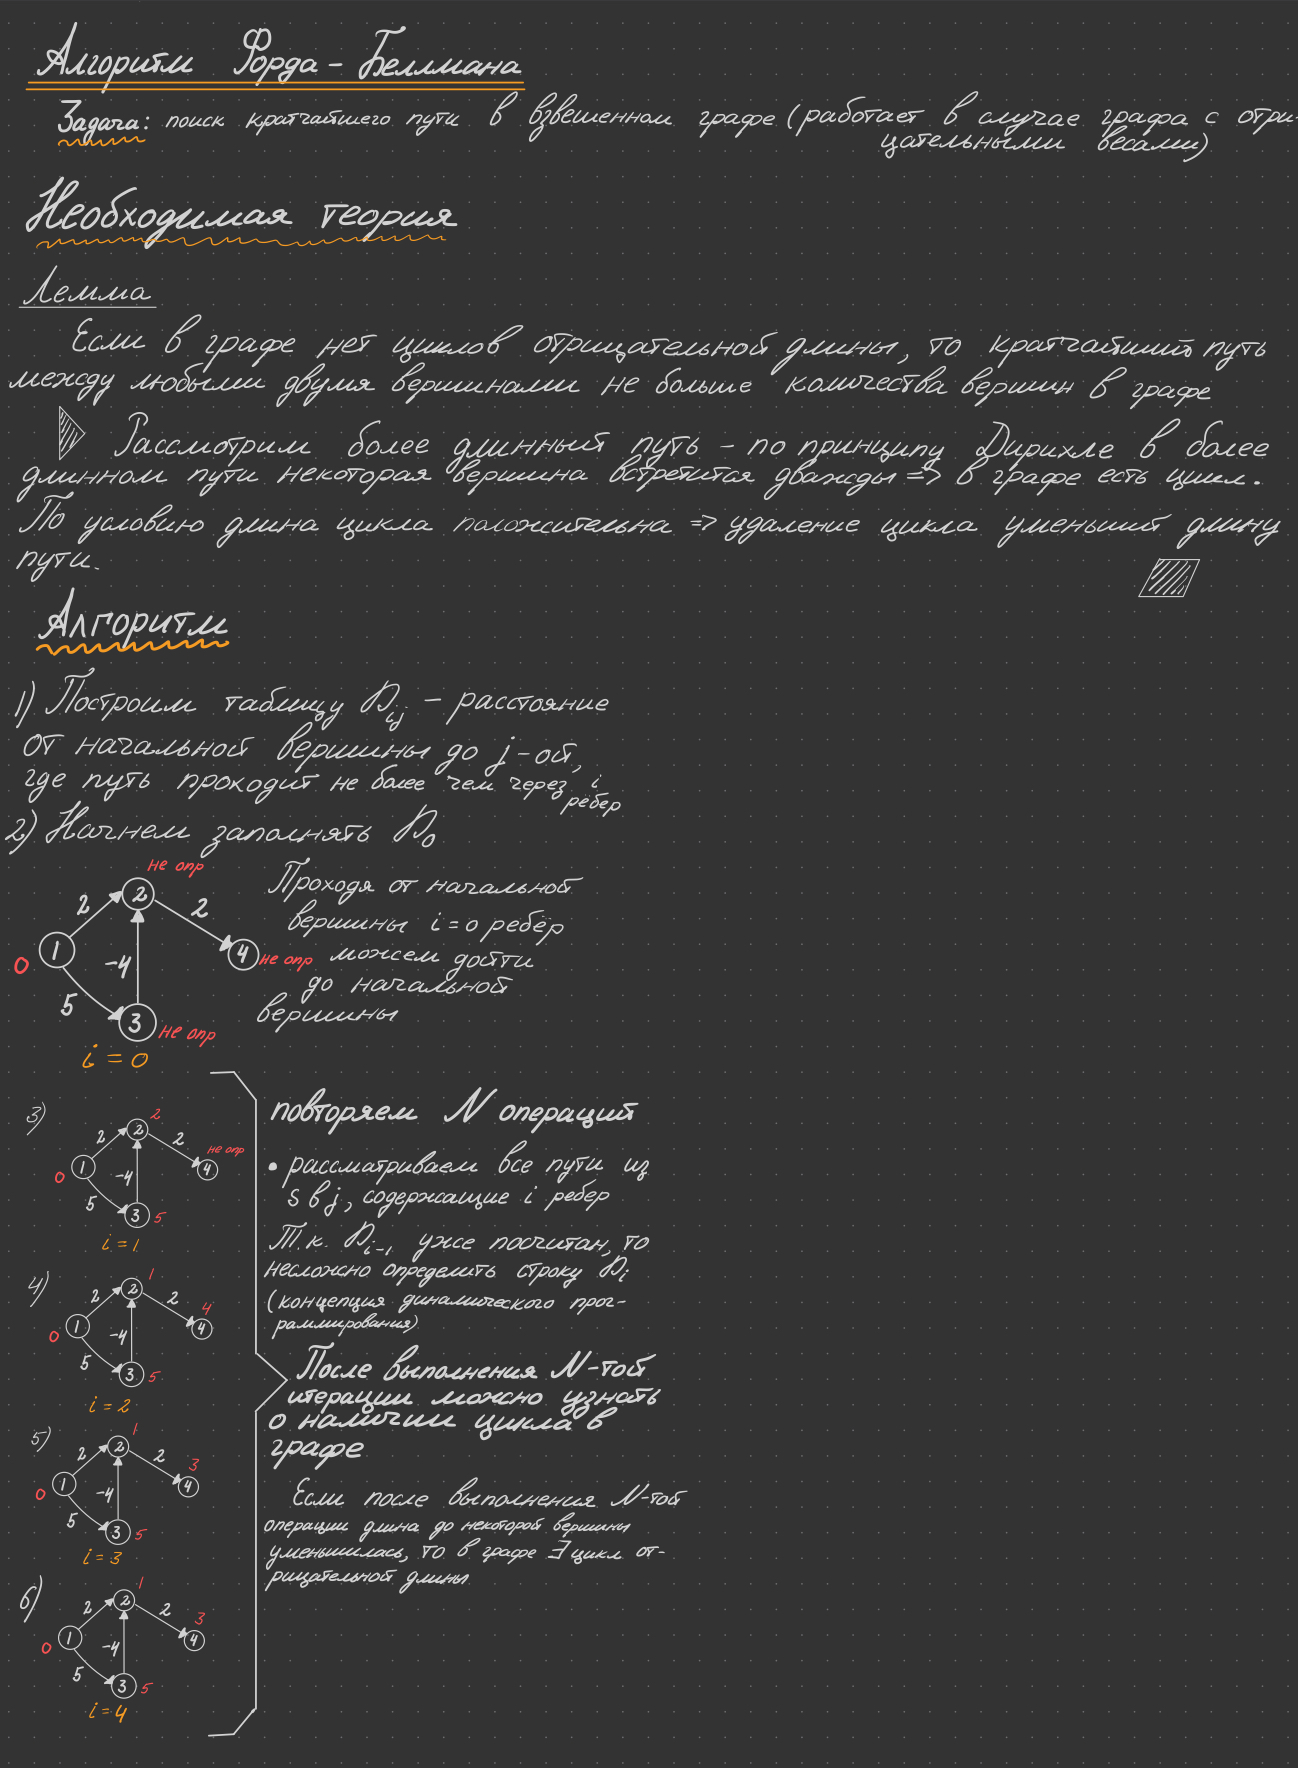 Алгоритм Форда - Беллмана
Задача: поиск кратчайшего пути в взвешенном графе (работает в случае графа с отри-
цательными весами)
Необходимая теория
Лемма
Если в графе нет циклов отрицательной длины, то кратчайший путь
между любыми двумя вершинами не больше количества вершин в графе
Рассмотрим более длинный путь - по принципу Дирихле в более
длинном пути некоторая вершина встретится дважды => в графе есть цикл.
По условию длина цикла положительна => удаление цикла уменьшит длину
пути.
Алгоритм
1) Построим таблицу D_ij - расстояние
от начальной вершины до j-ой,
где путь проходит не более чем через i
рёбер
2) Начнем заполнять D_0
не опр
2
2
2
1
4
0
-4
не опр
5
3
не опр
i = 0
Проходя от начальной
вершины i = 0 ребёр
можем дойти
до начальной
вершины
3)
2
2
2
2
не опр
1
4
0
-4
5
3
5
i = 1
4)
1
2
2
2
4
1
4
0
-4
5
3
5
i = 2
5)
1
2
2
2
3
1
4
0
-4
5
3
5
i = 3
6)
1
2
2
2
3
1
4
0
-4
5
3
5
i = 4
повторяем N операций
• рассматриваем все пути из
s в j, содержащие i ребер
Т.к. D_i-1 уже посчитан, то
несложно определить строку D_i
(концепция динамического прог-
раммирования)
После выполнения N-той
итерации можно узнать
о наличии цикла в
графе
Если после выполнения N-той
операции длина до некоторой вершины
уменьшилась, то в графе ∃ цикл от-
рицательной длины